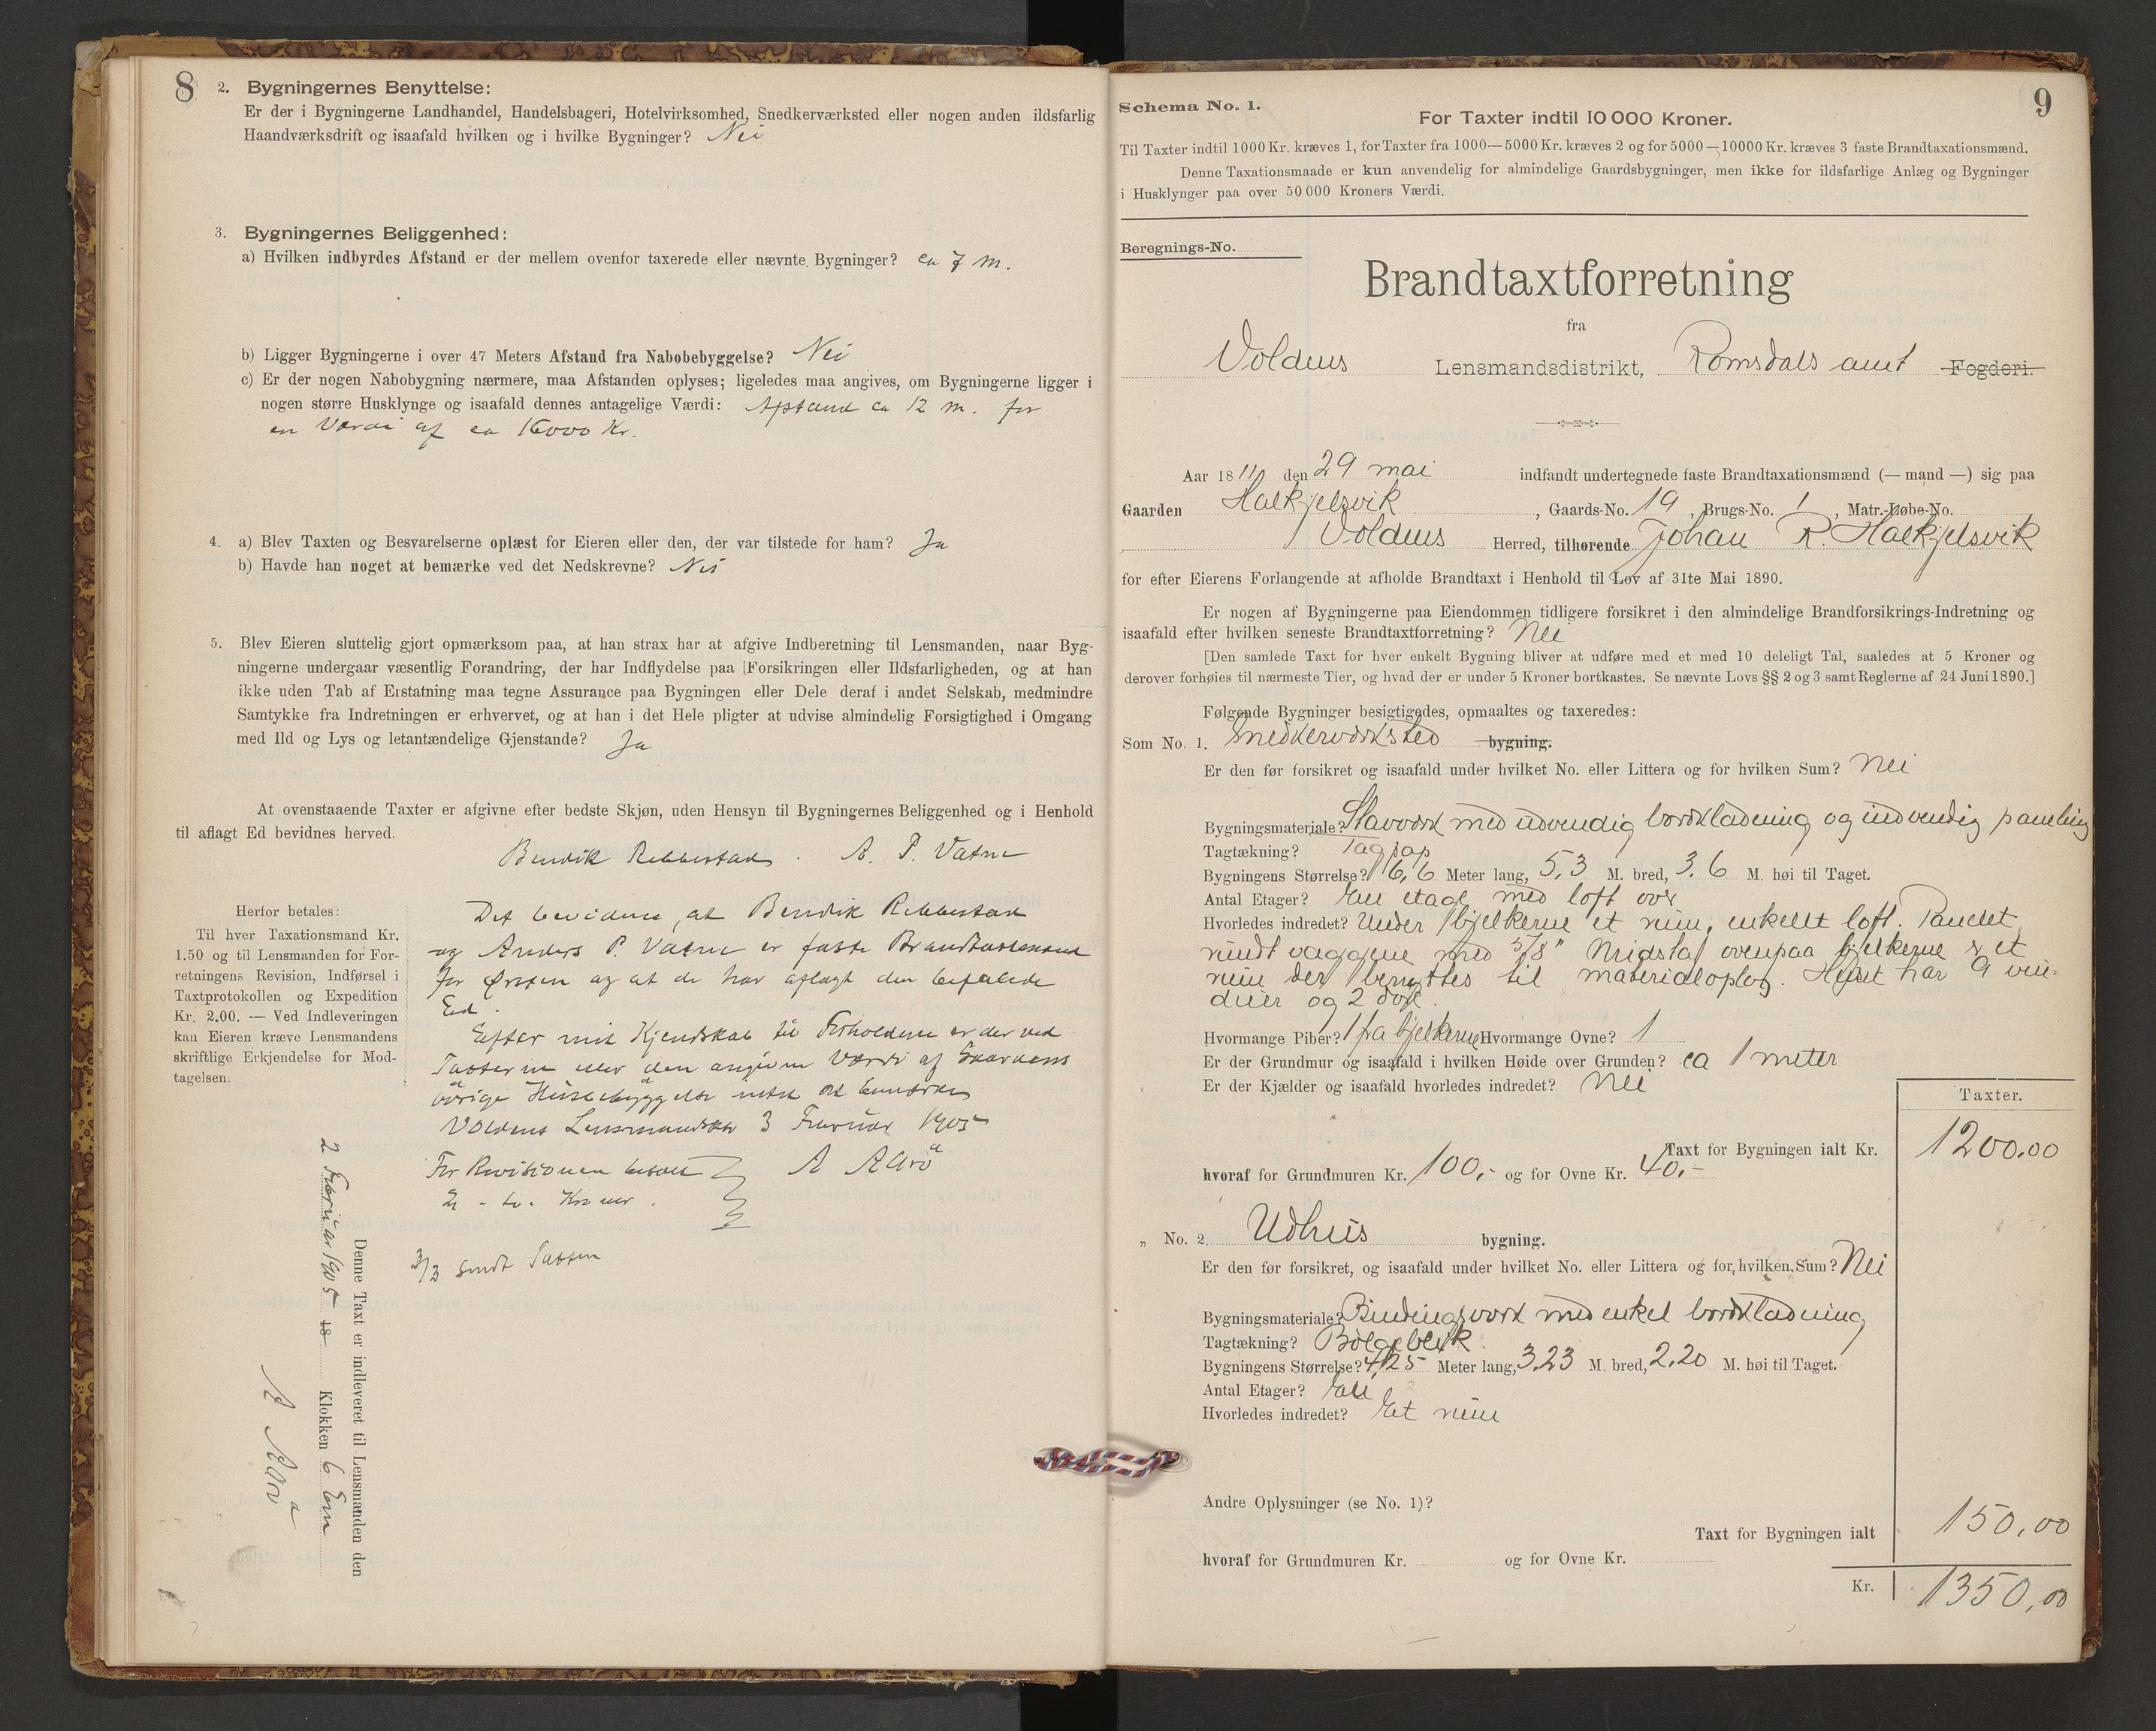 8
2. Bygningernes Benyttelse:
Er der i Bygningerne Landhandel, Handelsbageri, Hotelvirksomhed, Snedkerværksted eller nogen anden ildsfarlig
Haandværksdrift og isaafald hvilken og i hvilke Bygninger? Nei
3. Bygningernes Beliggenhed:
a) Hvilken indbyrdes Afstand er der mellem ovenfor taxerede eller nævnte Bygninger? ca 7 m.
b) Ligger Bygningerne i over 47 Meters Afstand fra Nabobebyggelse? Nei
c) Er der nogen Nabobygning nærmere, maa Afstanden oplyses; ligeledes maa angives, om Bygningerne ligger i
nogen større Husklynge og isaafald dennes antagelige Værdi: Afstand ca 12 m. for
en Værdi af ca 16000 Kr.
4. a) Blev Taxten og Besvarelserne oplæst for Eieren eller den, der var tilstede for ham? Ja
b) Havde han noget at bemærke ved det Nedskrevne? Nei
5. Blev Eieren sluttelig gjort opmærksom paa, at han strax har at afgive Indberetning til Lensmanden, naar Byg-
ningerne undergaar væsentlig Forandring, der har Indflydelse paa Forsikringen eller Ildsfarligheden, og at han
ikke uden Tab af Erstatning maa tegne Assurance paa Bygningen eller Dele deraf i andet Selskab, medmindre
Samtykke fra Indretningen er erhvervet, og at han i det Hele pligter at udvise almindelig Forsigtighed i Omgang
med Ild og Lys og letantændelige Gjenstande? Ja
At ovenstaaende Taxter er afgivne efter bedste Skjøn, uden Hensyn til Bygningernes Beliggenhed og i Henhold
til aflagt Ed bevidnes herved.
Bendik Rebbestad. A. P. Vatne
Herfor betales:
Til hver Taxationsmand Kr.
1.50 og til Lensmanden for For-
retningens Revision, Indførsel i
Taxtprotokollen og Expedition
Kr. 2.00. — Ved Indleveringen
kan Eieren kræve Lensmandens
skriftlige Erkjendelse for Mod-
tagelsen.
Det bevidnes, at Bendik Rebbestad
og Anders P. Vatne er faste Brandtaxtmænd
for Ørsten og at de har aflagt den befalede
Ed.
Efter mit Kjendskab til Forholdene er der ved
Taxterne eller den angivne Værdi af Gaardens
øvrige Husebyggelse intet at bemærke
Voldens Lensmandskr 3 Februar 1905
For Revisionen betalt A Aarø
2 - to - Kroner.
3/3 sendt Taxten
Denne Taxt er indleveret til Lensmanden den
2 Februar 1905 18 Klokken 6 Em
A Aarø
9
Schema No. 1.
For Taxter indtil 10 000 Kroner.
Til Taxter indtil 1000 Kr. kræves 1, for Taxter fra 1000—5000 Kr. kræves 2 og for 5000—10000 Kr. kræves 3 faste Brandtaxationsmænd.
Denne Taxationsmaade er kun anvendelig for almindelige Gaardsbygninger, men ikke for ildsfarlige Anlæg og Bygninger
i Husklynger paa over 50 000 Kroners Værdi.
Beregnings-No.
Brandtaxtforretning
fra
Voldens Lensmandsdistrikt, Romsdals amt Fogderi.
Aar 18 den 29 mai indfandt undertegnede faste Brandtaxationsmænd (— mand —) sig paa
Gaarden Halkjelsvik, Gaards-No. 19, Brugs-No. 1, Matr.-Løbe-No.
Voldens Herred, tilhørende Johan R. Halkjelsvik
for efter Eierens Forlangende at afholde Brandtaxt i Henhold til Lov af 31te Mai 1890.
Er nogen af Bygningerne paa Eiendommen tidligere forsikret i den almindelige Brandforsikrings-Indretning og
isaafald efter hvilken seneste Brandtaxtforretning? Nei
[Den samlede Taxt for hver enkelt Bygning bliver at udføre med et med 10 deleligt Tal, saaledes at 5 Kroner og
derover forhøies til nærmeste Tier, og hvad der er under 5 Kroner bortkastes. Se nævnte Lovs §§ 2 og 3 samt Reglerne af 24 Juni 1890.]
Følgende Bygninger besigtigedes, opmaaltes og taxeredes:
Som No. 1. Snedkerværksted bygning.
Er den før forsikret og isaafald under hvilket No. eller Littera og for hvilken Sum? Nei
Bygningsmateriale? Stavværk med udvendig bordklædning og indvendig paneling
Tagtækning? Tagpap
Bygningens Størrelse? 6,6 Meter lang, 5,3 M. bred, 3.6 M. høi til Taget.
Antal Etager? En etage med loft over
Hvorledes indredet? Under bjelkerne et rum, enkelt loft. Panelet
rundt væggene med 5/8" ovenpaa bjelkerne er et
rum der benyttes til materialoplag. Huset har 9 vin-
duer og 2 døre.
Hvormange Piber? 1 fra bjelkerne Hvormange Ovne? 1
Er der Grundmur og isaafald i hvilken Høide over Grunden? ca 1 meter
Er der Kjælder og isaafald hvorledes indredet? Nei
Taxter.
Taxt for Bygningen ialt Kr. 1200.00
hvoraf for Grundmuren Kr. 100,- og for Ovne Kr. 40.-
" No. 2. Udhus bygning.
Er den før forsikret, og isaafald under hvilket No. eller Littera og for hvilken Sum? Nei
Bygningsmateriale? Bindingsværk med enkel bordklædning
Tagtækning? Bølgeblik
Bygningens Størrelse? 4,25 Meter lang, 3,23 M. bred, 2,20 M. høi til Taget.
Antal Etager? En
Hvorledes indredet? Et rum
Andre Oplysninger (se No. 1)?
Taxt for Bygningen ialt 150,00
hvoraf for Grundmuren Kr. og for Ovne Kr.
Kr. 1350,00